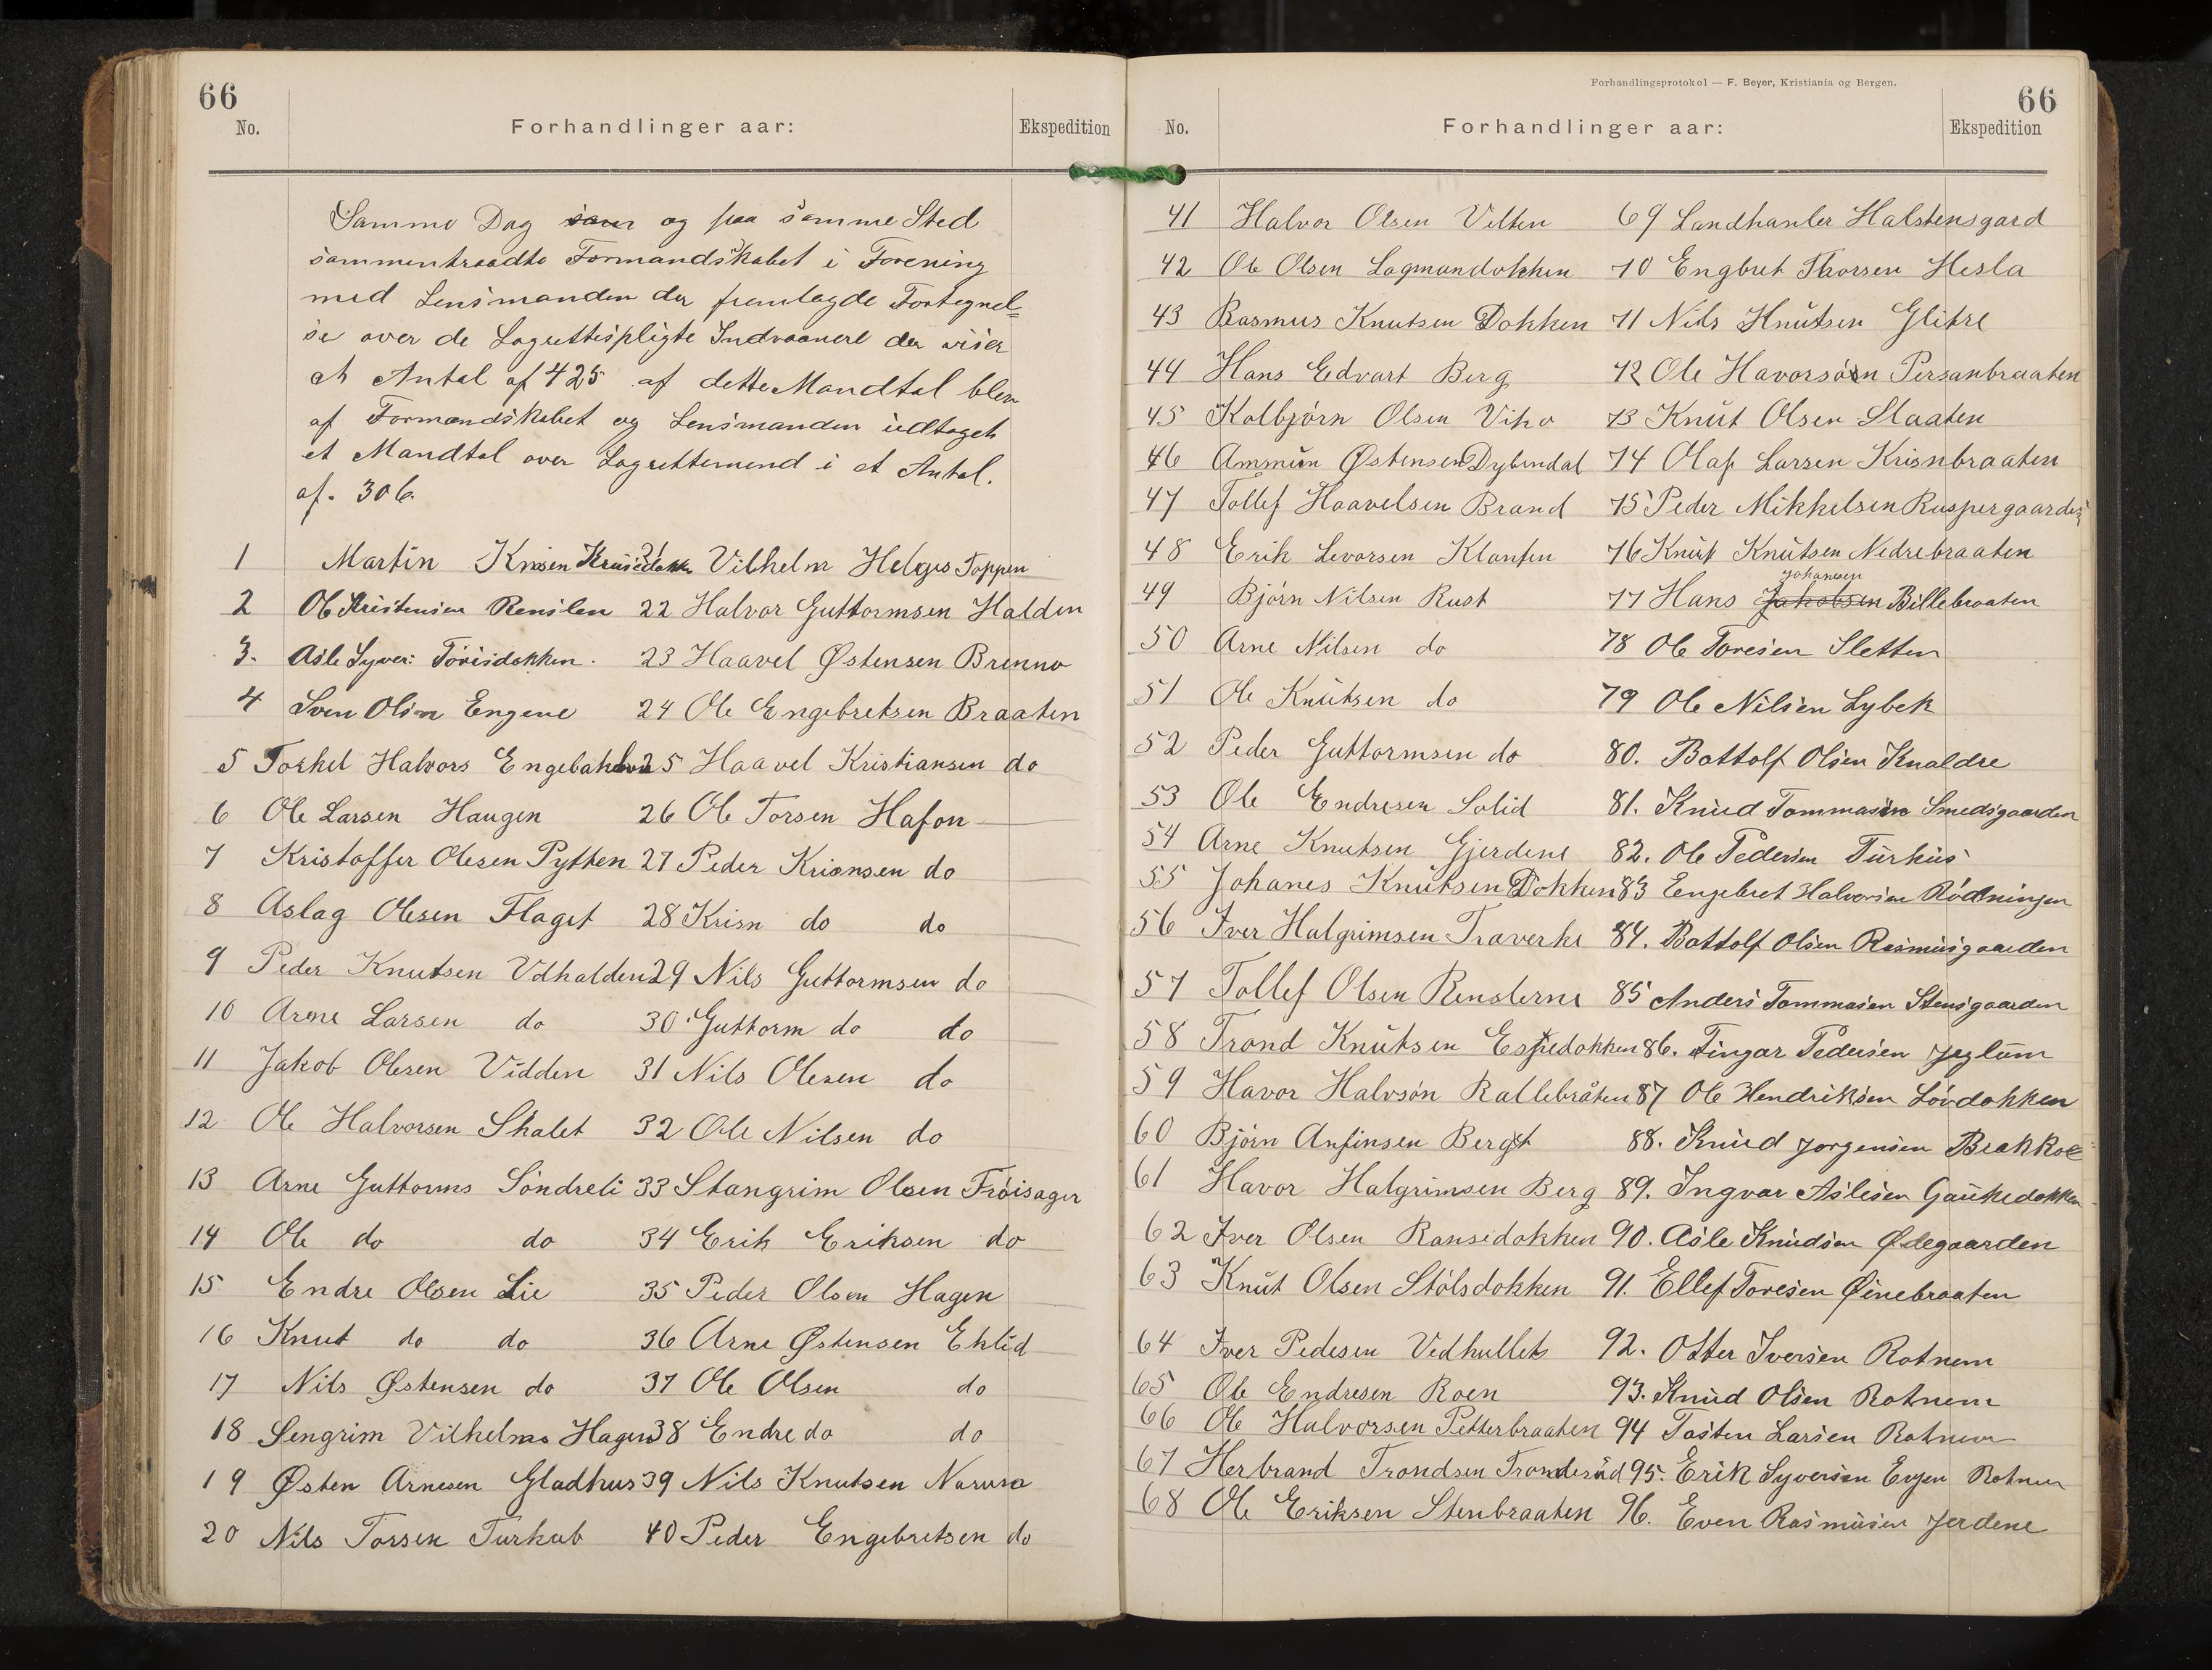 66
No.
Forhandlinger aar:
Ekspedition
Samme Dag og paa samme Sted
sammentraadte Formandskabet i Forening
med Lensmanden der fremlagde Fortegnel=
se over de Lagrettespligte Indvaanere der viser
et Antal af 425 af dette Mandtal blev
af Formandskabet og Lensmanden udtaget
et Mandtal over Lagrettemend i et Antal.
af. 306.
1 Martin 21 Vilhelm Helges Toppen
2 Ole Kristensen Renslen 22 Halvor Guttormsen Halden
3. Asle Syver: Torisdokken. 23 Haavel Østensen Brenno
4 Sven Olsen Engene 24 Ole Engebretsen Braaten
5 Torkel Halvors 25 Haavel Kristiansen do
6 Ole Larsen Haugen 26 Ole Torsen Hafon
7 Kristoffer Olesen Pytten 27 Peder Kriansen do
8 Aslag Olesen Flaget 28 Krisn do do
9 Peder Knutsen Vdhalden 29 Nils Guttormsen do
10 Arne Larsen do 30 Guttorm do do
11 Jakob Olesen Vidden 31 Nils Olesen do
12 Ole Halvorsen Skalet 32 Ole Nilsen do
13 Arne Guttorms Söndreli 33 Stangrim Olsen Fröisager
14 Ole do do 34 Erik Eriksen do
15 Endre Olsen Lie 35 Peder Olsen Hagen
16 Knut do do 36 Arne Østensen Eklid
17 Nils Østensen do 37 Ole Olsen do
18 Sengrim Vilhelms Hagen 38 Endre do do
19 Østen Arnesen Gladhus 39 Nils Knutsen Naruro
20 Nils Torsen Turkub 40 Peder Engebretsen do
Forhandlingsprotokol — F. Beyer, Kristiania og Bergen.
66
No.
Forhandlinger aar:
Ekspedition
41 Halvor Olsen Velten 69 Landhanler Halstensgard
42 Ole Olsen Lagmandokken 70 Engbret Thorsen Hesla
43 Rasmus Knutsen Dokken 71 Nils Knutsen Glitre
44 Hans Edvart Berg 72 Ole Havorsön Persanbraaten
45 Kolbjörn Olsen Viko 73 Knut Olsen Slaaten
46 Ammun Østensen Dybendal 74 Olaf Larsen Krisnbraaten
47 Tollef Haavelsen Brand 75 Peder Mikkelsen Ruspergaarden
48 Erik Levorsen Klanten 76 Knut Knutsen Nedrebraaten
49 Björn Nilsen Rust 77 Hans Jakobsen Johansen Billebraaten
50 Arne Nilsen do 78 Ole Toresen Sletten
51 Ole Knutsen do 79 Ole Nilsen Lybek
52 Peder Guttormsen do 80. Bottolf Olsen Knaldre
53 Ole Endresen Solid 81. Knud Tommasen Smedsgaarden
54 Arne Knutsen Gjerdene 82. Ole Pedersen Turhus
55 Johanes Knutsen Dokken 83 Eengebret Halvorsen Rödningen
56 Iver Halgrimsen Traverke 84. Bottolf Olsen Rasmusgaarden
57 Tollef Olsen Renslerne 85 Anders Tommasen Stensgaarden
58 Trond Knutsen Espedokken 86. Fingar Pedersen Jeglum
59 Havor Halvsön Rallebråten 87 Ole Hendriksen Lövdokken
60 Björn Anfinsen Berget 88. Knud Jorgensen Brokkoe
61 Havor Halgrimsen Berg 89. Ingvar Aslesen Gaukedokken
62 Iver Olsen Ransedokken 90. Asle Knudsen Ødegaarden
63 Knut Olsen Stölsdokken 91. Ellef Toresen Øinebraaten
64 Iver Pedesen Vedhullet 92. Otter Iversen Rotnem
65 Ole Endresen Roen 93. Knud Olsen Rotnem
66 Ole Halvorsen Petterbraaten 94 Tosten Larsen Rotnem
67 Herbrand Trondsen Tronderud 95. Erik Syversen Evjen Rotnem
68 Ole Eriksen Stenbraaten 96. Even Rasmusen Jerdene